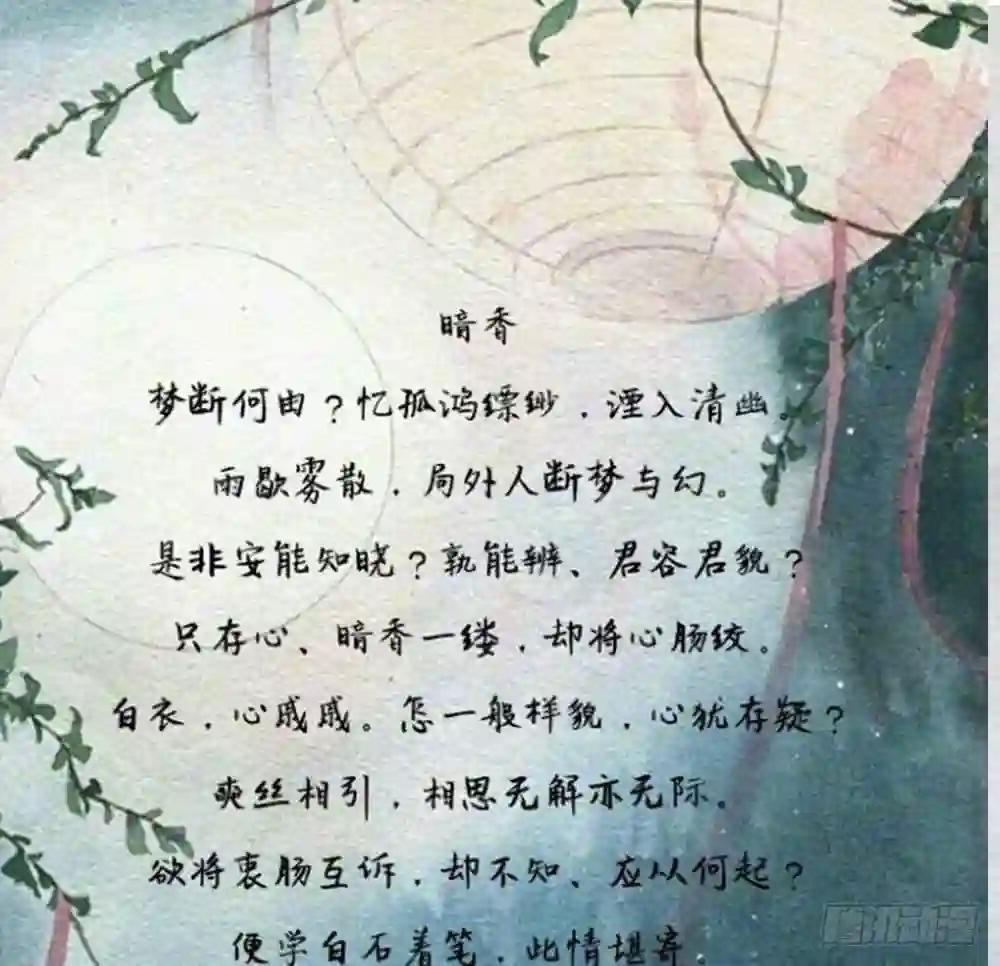 暗香
梦断何由？忆孤鸿缥缈，湮入清幽。
雨歇雾散，局外人断梦与幻。
是非安能知晓？孰能辨、君容君貌？
只存心、暗香一缕，却将心肠绞。
白衣，心戚戚。怎一般样貌，心犹存疑？
爽丝相引，相思无解亦无际。
欲将衷肠互诉，却不知、应从何起？
便学白石着笔，此情堪寄。